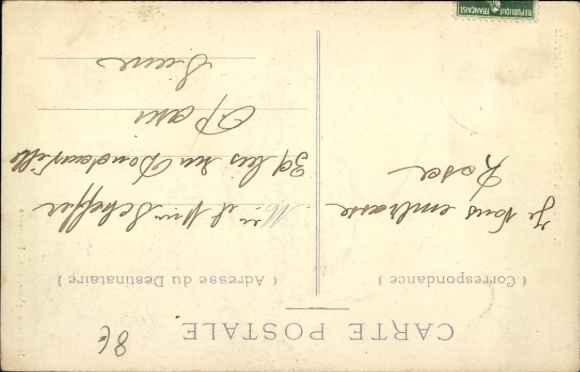 CARTE POSTALE
( Correspondance )
Je Vous embrasse
Rosa
( Adresse du Destinataire )
Mr et Mme Scheffer
39 bis rue Doudeauville
Paris
Seine
8€
REPUBLIQUE FRANÇAISE